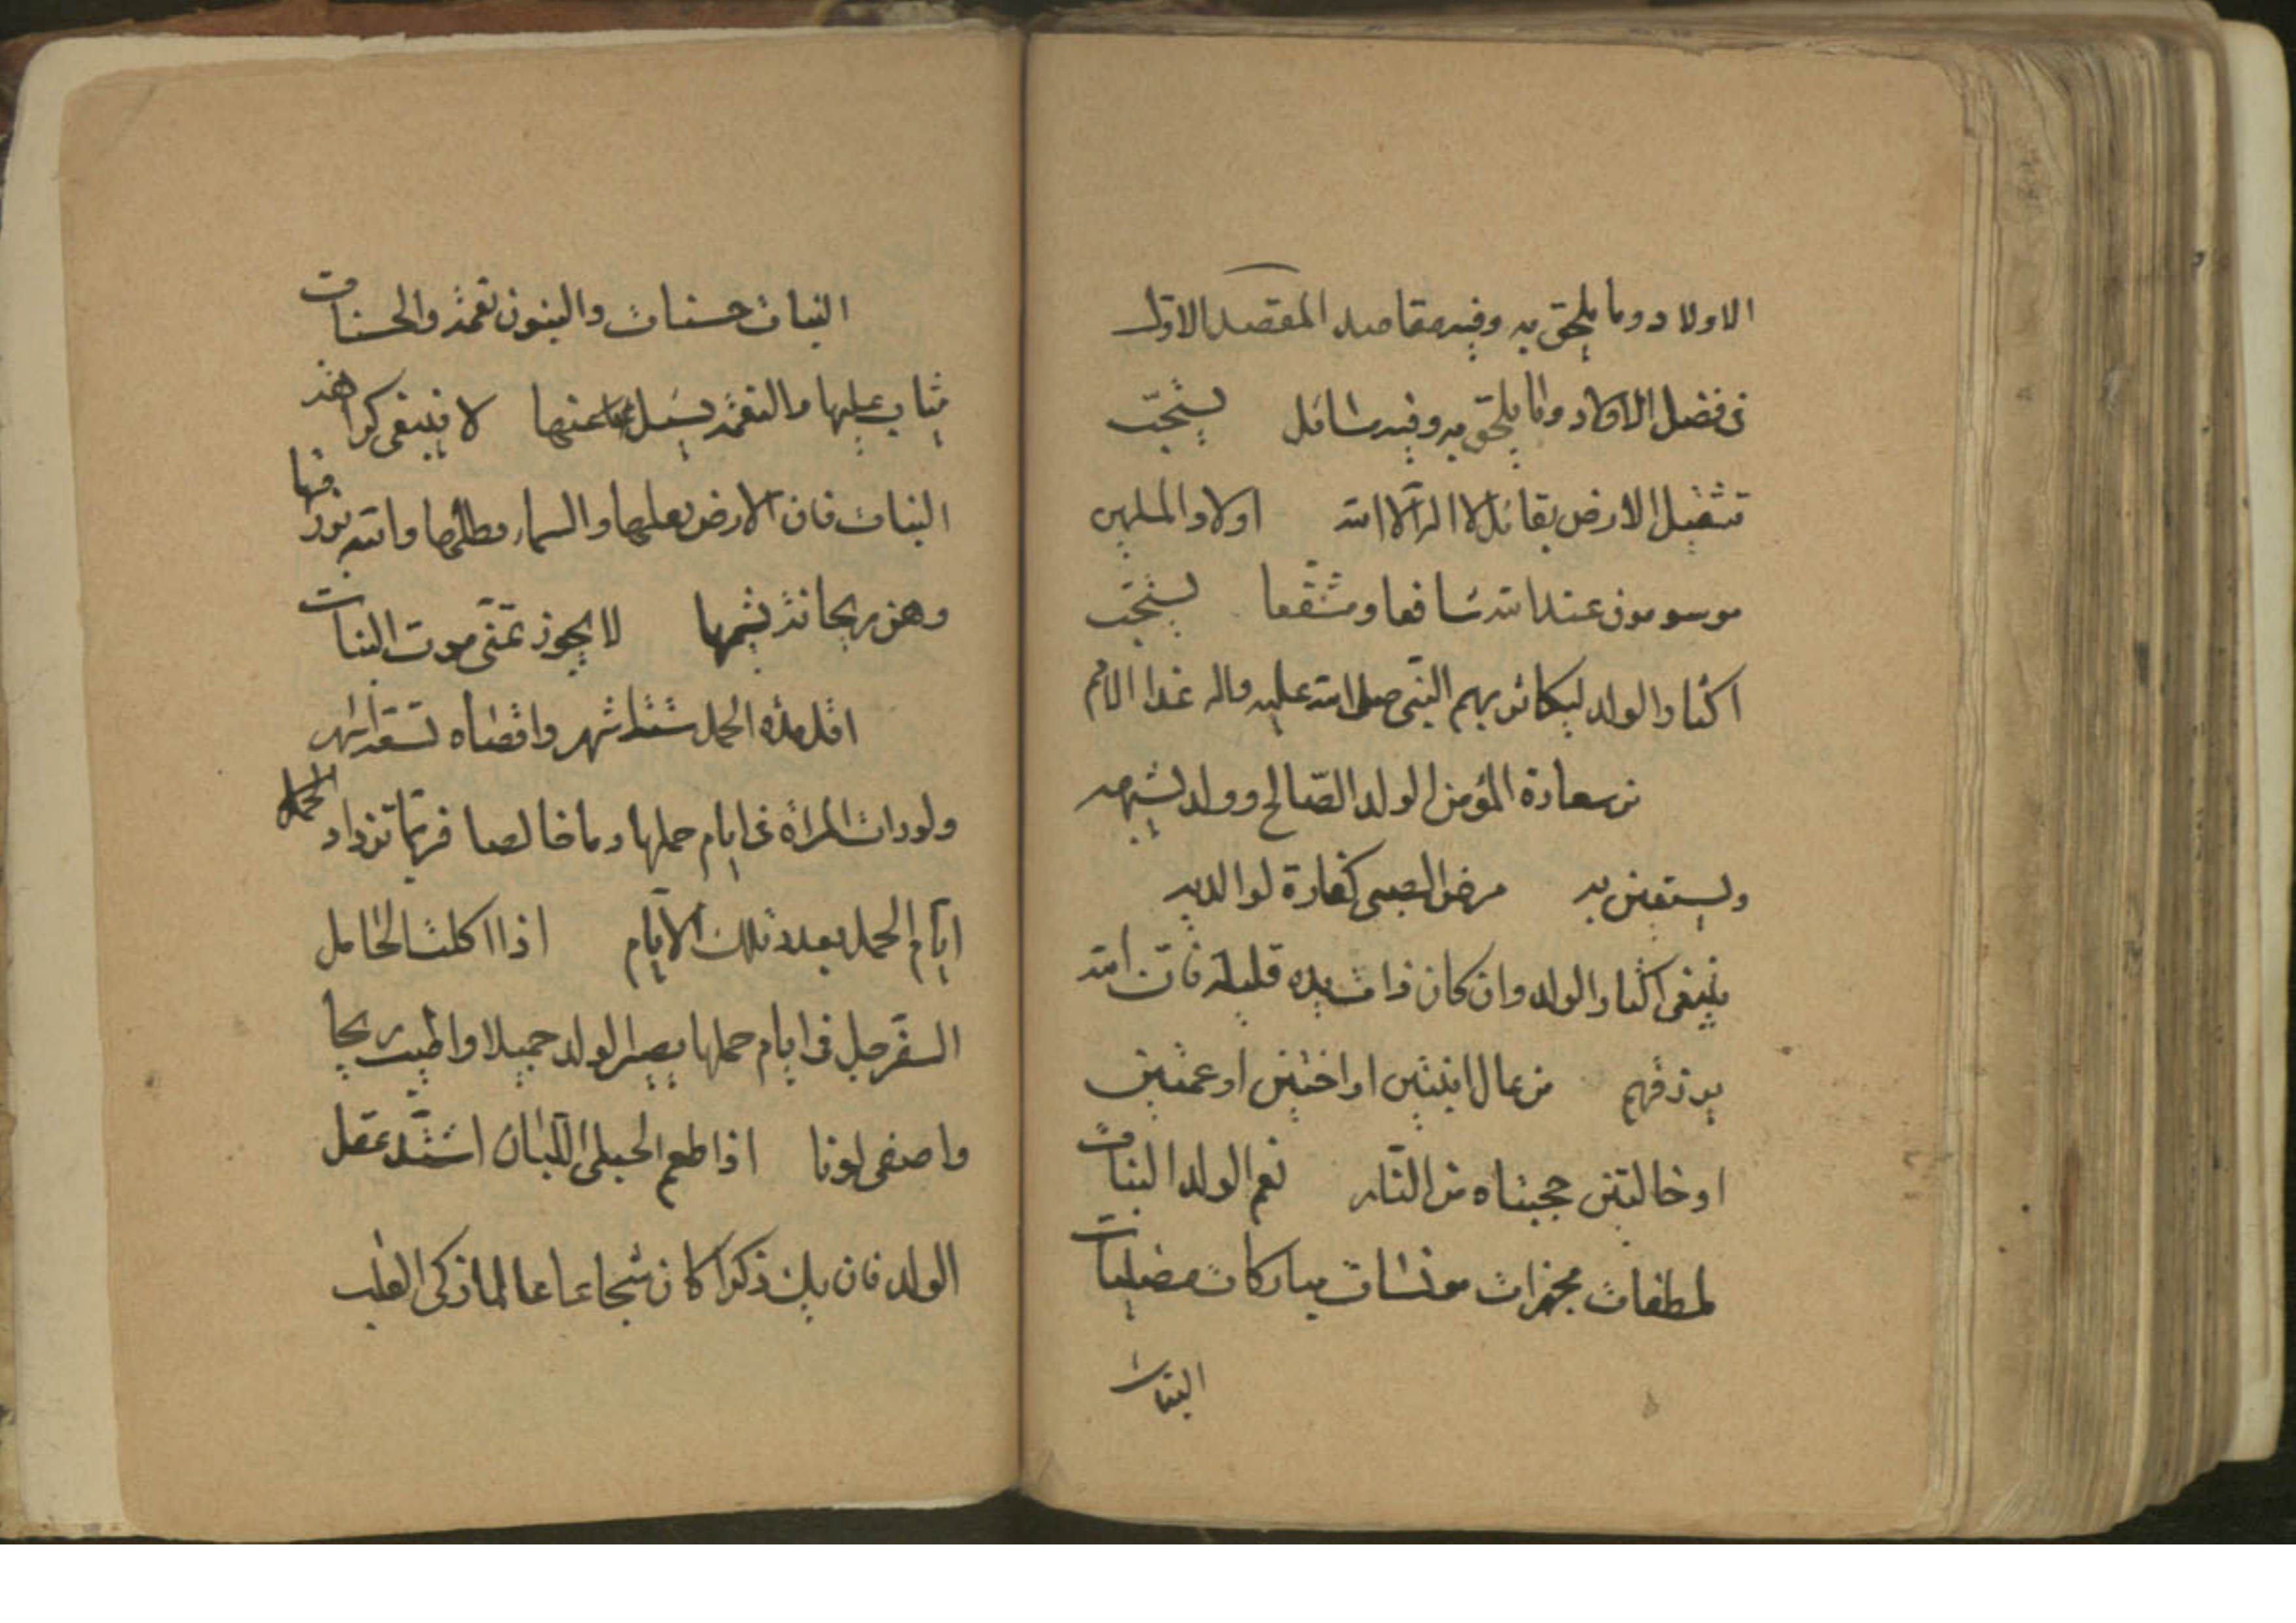 الاولاد وما يلحق به وفيه مقاصد المقصد الاول
في فضل الاولاد وما يلحق به وفيه مسائل يستحب
تثقيل الارض بقائل لا اله الا الله اولاد المسلمين
موسومون عند الله شافعا ومشفعا يستحب
اكثار الولد ليكاثر بهم النبي صلى الله عليه واله غدا الامم
من سعادة المؤمن الولد الصالح وولد يشبهه
ويستعين به مرض الصبى كفارة لوالديه
ينبغى اكثار الولد وان كان ذات يده قليلة فان الله
يرزقهم من عال ابنتين او اختين او عمتين
او خالتين حجبتاه من النار نعم الولد البنات
ملطفات مجهزات مونسات مباركات
البنات
البنات حسنات والبنون نعمة والحسنات
يثاب عليها والنعمة يسئل عنها لا ينبغى كراهة
البنات فان الارض تعلها والسماء تظلها والله يرزقها
وهن ريحانة يشمها لا يجوز تمنى موت البنات
اقل مدة الحمل ستة اشهر واقصاه تسعة اشهر
ولو رات المراة في ايام حملها دما خالصا فربما تزداد
ايام الحمل بعدد تلك الايام اذا اكلت الحامل
السفرجل في ايام حملها يصير الولد جميلا واطيب ريحا
واصفى لونا اذا اطعم الحبلى اللبان اشتد عقل
الولد فان يك ذكرا كان شجاعا عالما زكى القلب